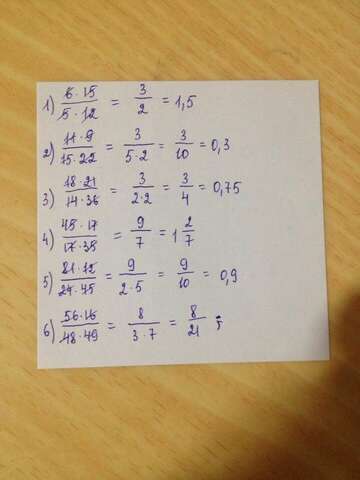 1) 6·15/5·12 = 3/2 = 1,5
2) 11·9/15·22 = 3/5·2 = 3/10 = 0,3
3) 18·21/14·36 = 3/2·2 = 3/4 = 0,75
4) 45·17/17·35 = 9/7 = 1 2/7
5) 81·12/24·45 = 9/2·5 = 9/10 = 0,9
6) 56·16/48·49 = 8/3·7 = 8/21 ;